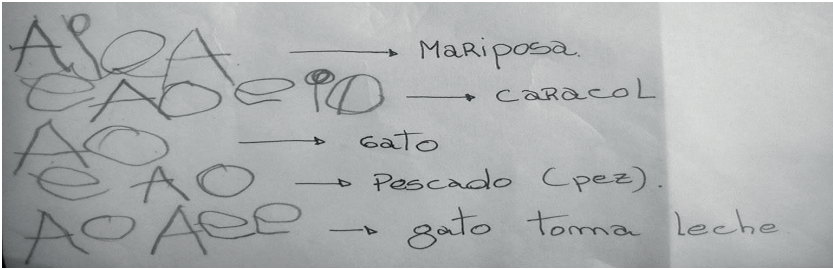 APeA → MaRiposa.
eAOeiO → caRacoL
AO → Gato
e AO → Pescado (pez).
AO Aee → gato toma leche